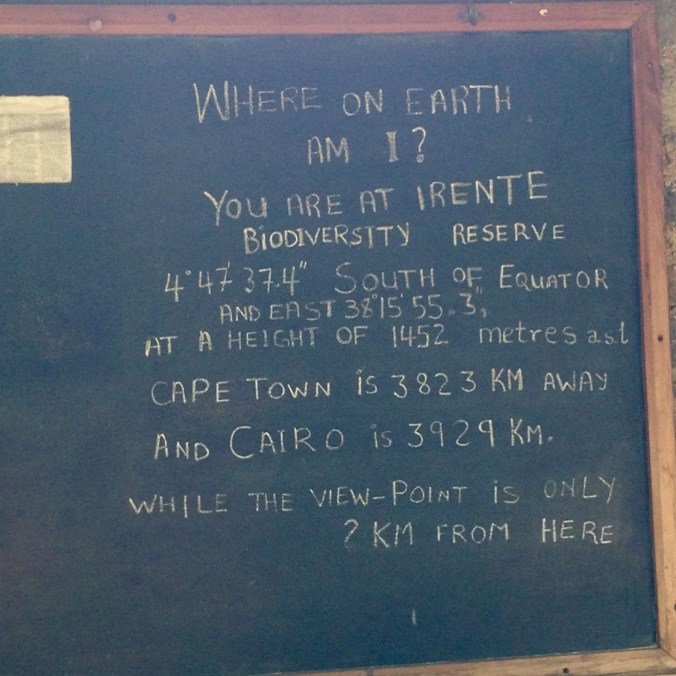 WHERE ON EARTH
AM I?
YOU ARE AT IRENTE
BIODIVERSITY RESERVE
4°47'37.4" SOUTH OF EQUATOR
AND EAST 38°15'55.3",
AT A HEIGHT OF 1452 metres a.s.l
CAPE TOWN is 3823 KM AWAY
AND CAIRO is 3929 KM.
WHILE THE VIEW-POINT is ONLY
? KM FROM HERE